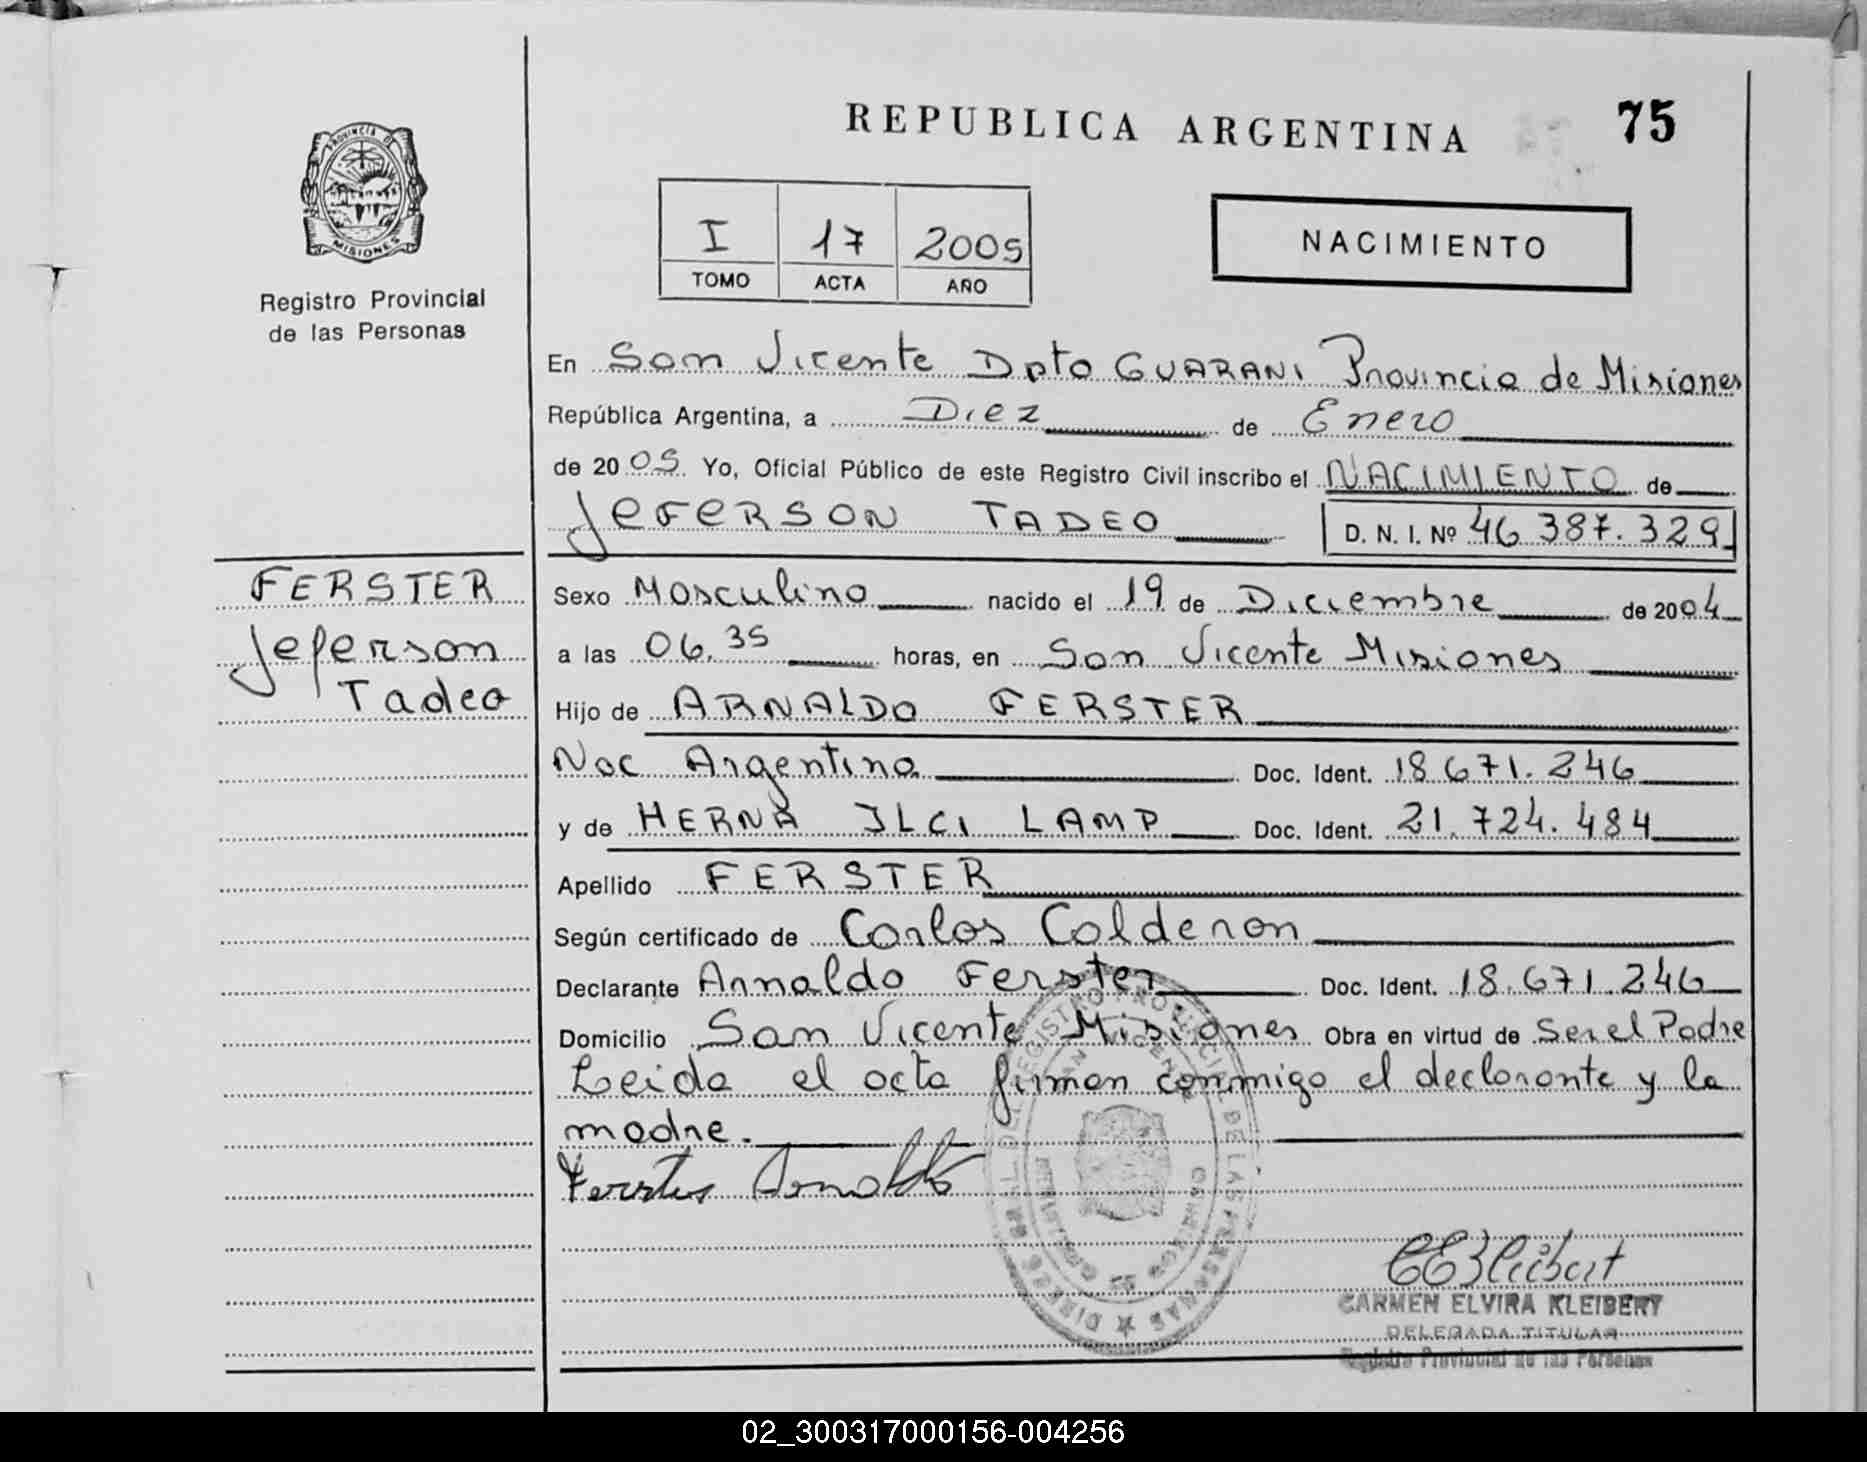 REPUBLICA ARGENTINA
75
PROVINCIA DE
MISIONES
Registro Provincial
de las Personas
I 17 2005
TOMO ACTA AÑO
NACIMIENTO
En San Vicente Dpto GUARANI Provincia de Misiones
República Argentina, a Diez de Enero
de 2005 Yo, Oficial Público de este Registro Civil inscribo el NACIMIENTO de
JEFERSON TADEO D. N. I. Nº 46 387.329
FERSTER
Jeferson
Tadeo
Sexo Masculino nacido el 19 de Diciembre de 2004
a las 06.35 horas, en San Vicente Misiones
Hijo de ARNALDO FERSTER
Nac Argentina Doc. Ident. 18 671.246
y de HERNA ILCI LAMP Doc. Ident. 21.724.484
Apellido FERSTER
Según certificado de Carlos Calderon
Declarante Arnaldo Ferster Doc. Ident. 18.671.246
Domicilio San Vicente Misiones Obra en virtud de Ser el Padre
Leida el acta firman conmigo el declarante y la
madre.
Ferster Arnaldo
CEKleibert
CARMEN ELVIRA KLEIBERT
DELEGADA TITULAR
Registro Provincial de las Personas
02_300317000156-004256